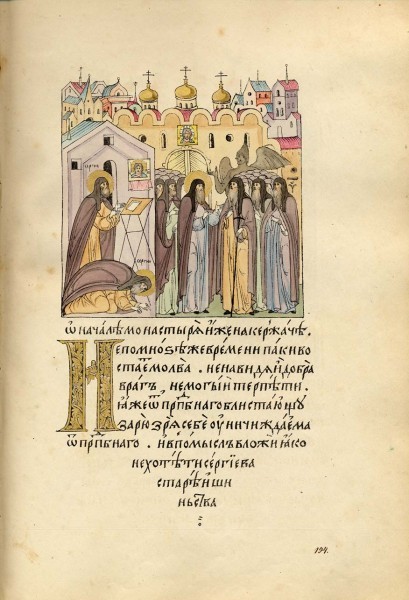 сергїи
сергїи
Ѡ началѣ монастырѧ иже на киржачѣ.
Не по мноѕѣ же времени паки во
ста́ мо́лва. ненавидѧй добра
врагъ, не могїй терпѣти
ꙗже ѿ прпⷣбнаго блистающꙋ
зарю зрѧ себе оуничижаема
ѿ прпⷣбнаго. и в помыслъ вложи ꙗко
не хотѣти сергїева
старѣйши
ньства
194.